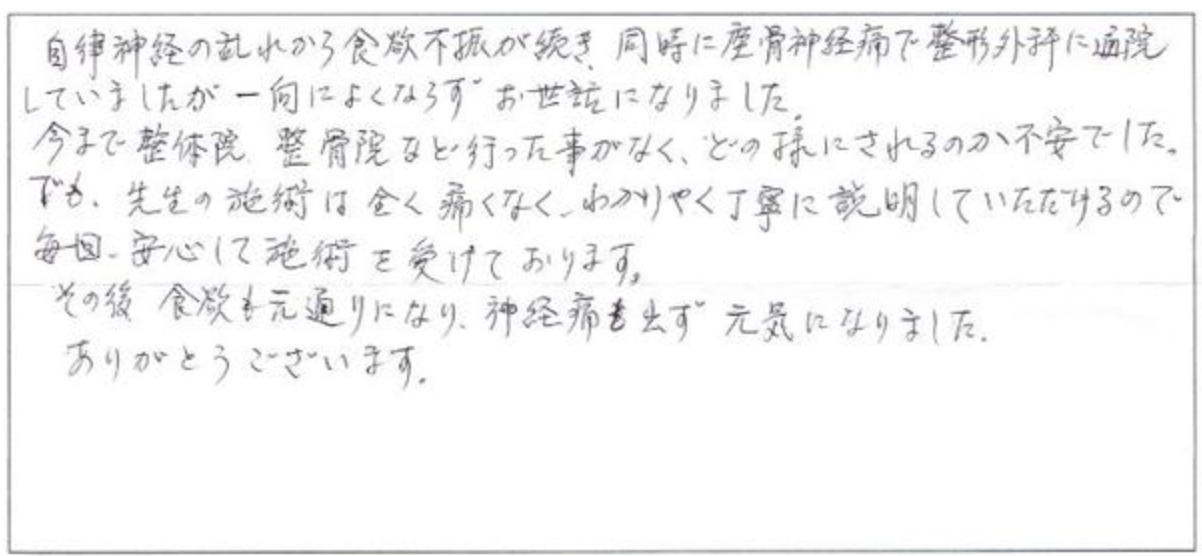 自律神経の乱れから食欲不振が続き、同時に座骨神経痛で整形外科に通院
していましたが一向によくならず お世話になりました。
今まで整体院、整骨院など行った事がなく、どの様にされるのか不安でした。
でも、先生の施術は全く痛くなく、わかりやく丁寧に説明していただけるので
毎回、安心して施術を受けております。
その後、食欲も元通りになり、神経痛も出ず 元気になりました。
ありがとうございます。